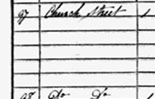 97 Church Street 1
98 Do Do 1